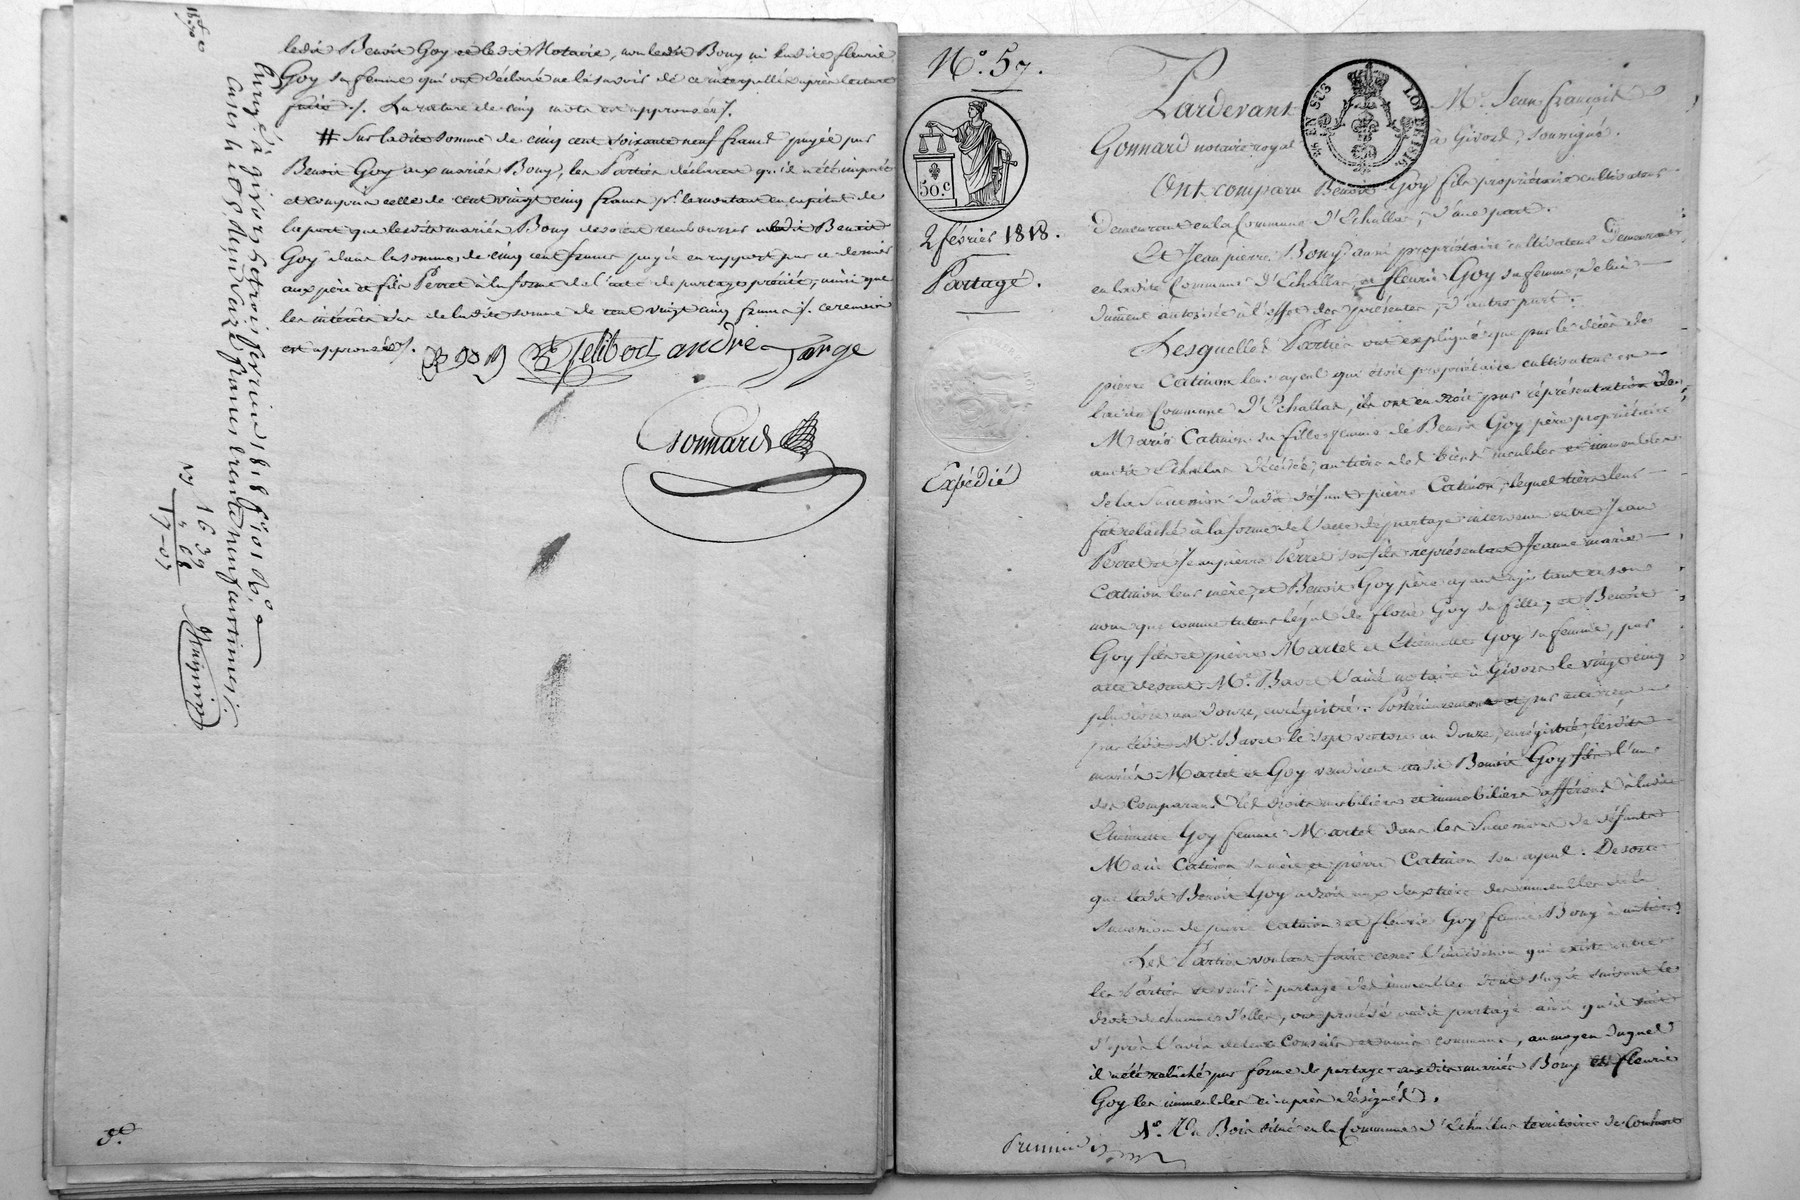 ledit Benoit Goy et ledit Notaire, non ledit Bony ni ladite fleurie
Goy sa femme qui ont déclaré ne le savoir de ce interpellés après lecture
faite ./. La rature de cinq mots est approuvée ./.
# Sur ladite somme de cinq cent soixante neuf francs payée par
Benoit Goy aux mariés Bony, les Parties déclarent qu'il a été imputé
et compris celle de cent vingt cinq francs pr. le montant en capital de
la part que lesdits mariés Bony devoient rembourser audit Benoit
Goy dans la somme de cinq cent francs payée en rapport par ce dernier
aux père et fils Perret à la forme de l'acte de partage précité, ainsi que
les intérêts de ladite somme de cent vingt cinq francs ./. ce renvoi
est approuvé ./.
Bony Jelibert andré farge
Gonnard
Enregé à givors le trois fevrier 1818 fo 101
onze francs trente neuf centimes
16 39
68
17-07
5e
No. 57.
50.c
2 février 1818.
Partage.
Expédié
Pardevant Me. Jean françois
Gonnard notaire royal à Givors, soussigné.
TIMB. EN SUS LOI DE 1816.
Ont comparu Benoit Goy fils propriétaire cultivateur
demeurant en la Commune d'Echallas, d'une part.
Et Jean pierre Bony aussi propriétaire cultivateur demeurant
en ladite Commune d'Echallas, et fleurie Goy sa femme de lui
dument autorisée à l'effet des présentes, d'autre part.
Lesquelles Parties ont expliqué que par le décès de
pierre Catinon leur ayeul qui étoit propriétaire cultivateur en
ladite Commune d'Echallas, ils ont eu droit par représentation de
Marie Catinon sa fille femme de Benoit Goy père propriétaire
audit Echallas décédée, au tiers des biens meubles et immeubles
de la Succession dudit défunt pierre Catinon, lequel tiers leur
fut relaché à la forme de l'acte de partage intervenu entre Jean
Perret et Jean pierre Perret son fils représentant Jeanne marie
Catinon leur mère, et Benoit Goy père ayant agi tant en son
nom que comme tuteur légal de florie Goy sa fille, et Benoit
Goy fils et pierre Martel et Etiennette Goy sa femme, par
acte devant Me. Bavet l'ainé notaire à Givors le vingt cinq
pluviose an douze, enregistré. Postérieurement et par acte reçu
par ledit Me. Bavet le sept ventose an douze, enregistré, lesdits
mariés Martel et Goy vendirent audit Benoit Goy fils l'un
des Comparans les droits mobiliers et immobiliers afférens à ladite
Etiennette Goy femme Martel dans les Successions de défunts
Marie Catinon sa mère et pierre Catinon son ayeul. De sorte
que ledit Benoit Goy a droit aux deux tiers des immeubles de la
Succession de pierre Catinon et fleurie Goy femme Bony à un tiers.
Les Parties voulant faire cesser l'indivision qui existe entre
les Parties et venir à partage des immeubles dont s'agit suivant le
droit de chacune d'elles, ont procédé audit partage ainsi qu'il suit
d'après l'avis de leurs Conseils et amis communs, au moyen duquel
il a été relaché par forme de partage auxdits mariés Bony et fleurie
Goy les immeubles ci-après désignés.
1o. Un Bois situé en la Commune d'Echallas territoire de